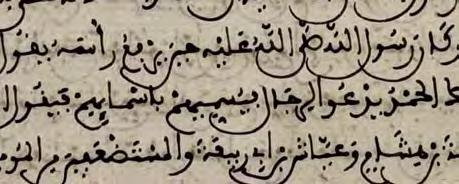 وكان رسول الله صلى الله عليه حين يرفع رأسه يقول
الحمد يدعو لرجال فيسميهم باسمايهم فيقول
بن هشام وعياش بن ابي ربيعة والمستضعفين من المو